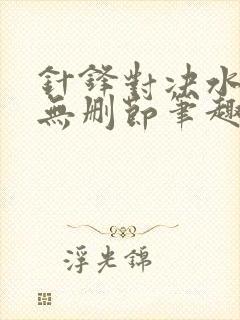 針鋒對决水
無删節筆趣
浮光錦